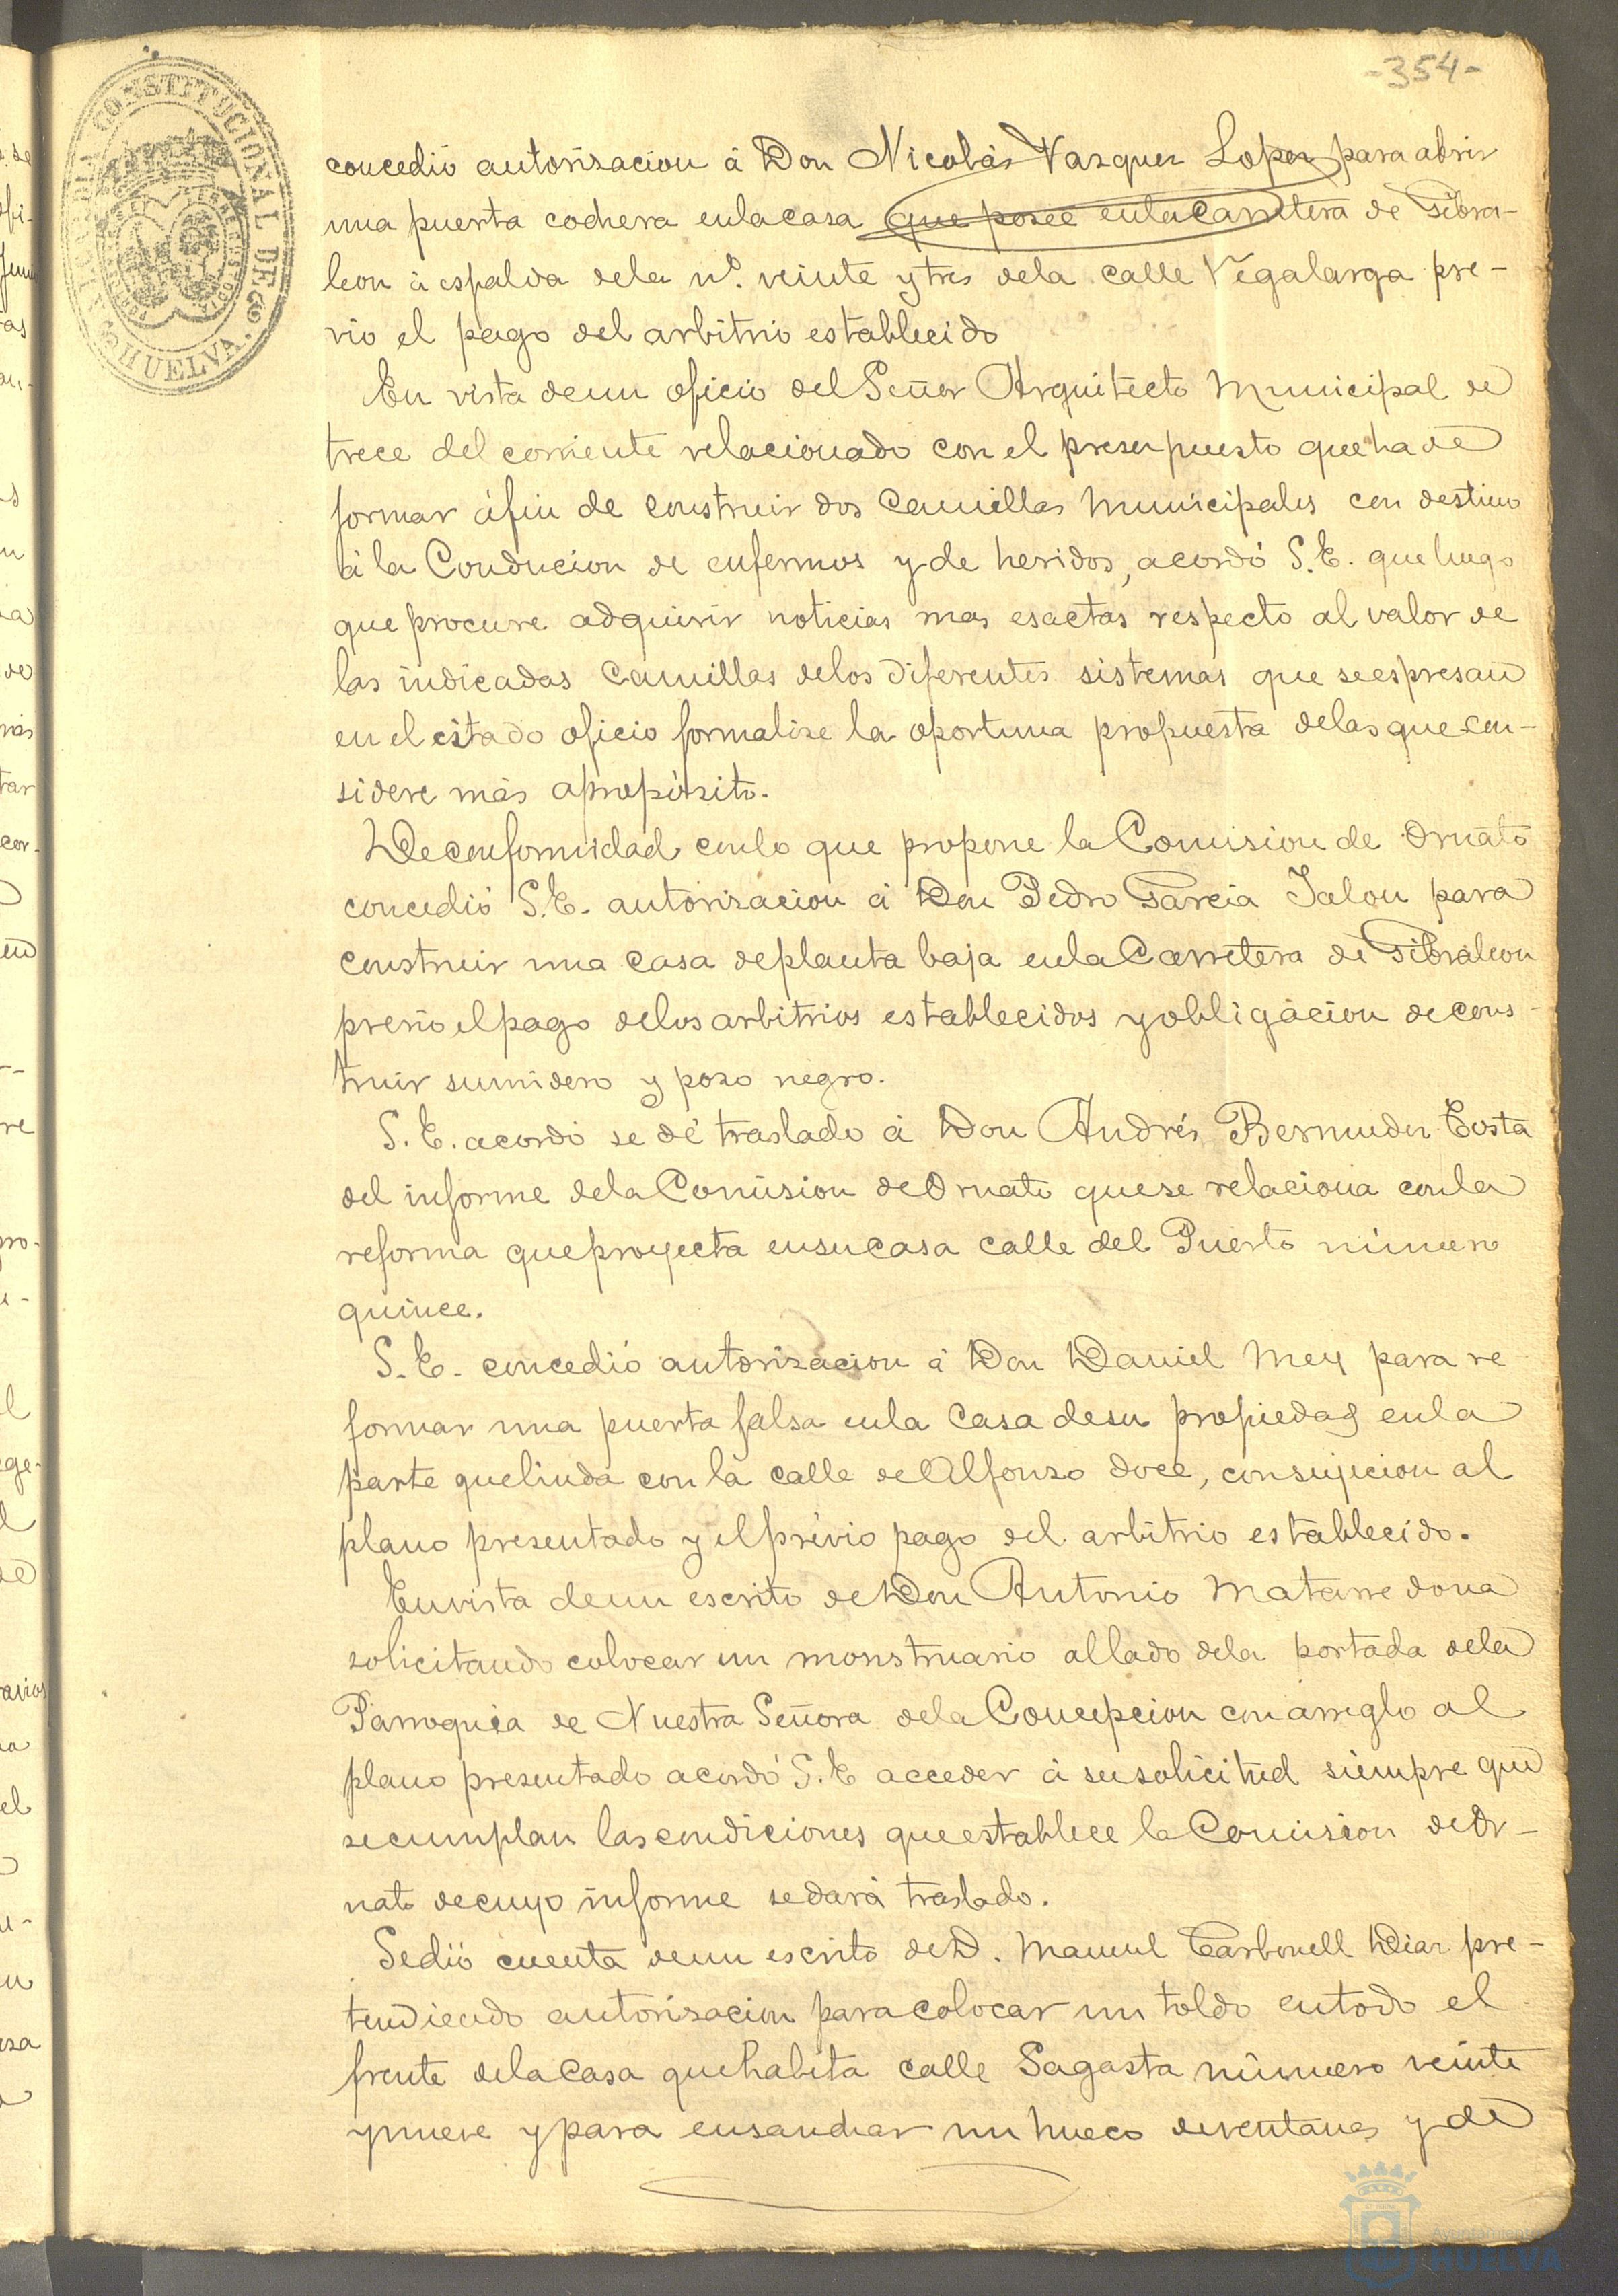 -354-
ALCALDIA CONSTITUCIONAL DE HUELVA.
concedió autorizacion á Don Nicolás Vazquez Lopez para abrir
una puerta cochera enlacasa que posee enlaCarretera de Gibra-
leon á espalda dela nº. veinte y tres dela calle Vegalarga pre-
vio el pago del arbitrio establecido
En vista deun oficio del Señor Arquitecto Municipal de
trece del corriente relacionado con el presupuesto queha de
formar áfin de construir dos Camillas Municipales con destino
á la Conducion de enfermos y de heridos, acordó S.E. que luego
que procure adquirir noticias mas esactas respecto al valor de
las indicadas Camillas delos diferentes sistemas que seespresan
en el citado oficio formalise la oportuna propuesta delasque con-
sidere más apropósito.
Deconformidad conlo que propone la Comision de Ornato
concedió S.E. autorizacion á Don Pedro Garcia Jalon para
construir una casa deplanta baja enlaCarretera de Gibraleon
previo elpago delosarbitrios establecidos yobligacion decons-
truir sumidero y pozo negro.
S.E. acordó se dé traslado á Don Andrés Bermudez Costa
del informe delaComision deOrnato quese relaciona conla
reforma queproyecta ensucasa calle del Puerto número
quince.
S.E. concedió autorizacion á Don Daniel Mey para re
formar una puerta falsa enla Casa desu propiedad enla
parte quelinda con la calle deAlfonso doce, consujecion al
plano presentado y elprévio pago del arbitrio establecido.
Envista deun escrito deDon Antonio Matarredona
solicitando colocar un monstruario allado dela portada dela
Parroquia de Nuestra Señora delaConcepcion conarreglo al
plano presentado acordó S.E acceder á susolicitud siempre que
secumplan lascondiciones queestablece laComision deOr-
nato decuyo informe sedará traslado.
Sedió cuenta deun escrito deD. Manuel Carbonell Diaz pre-
tendiendo autorizacion paracolocar un toldo entodo el
frente delaCasa quehabita calle Sagasta número veinte
ynueve y para ensanchar un hueco deventanas y de
Ayuntamiento
HUELVA